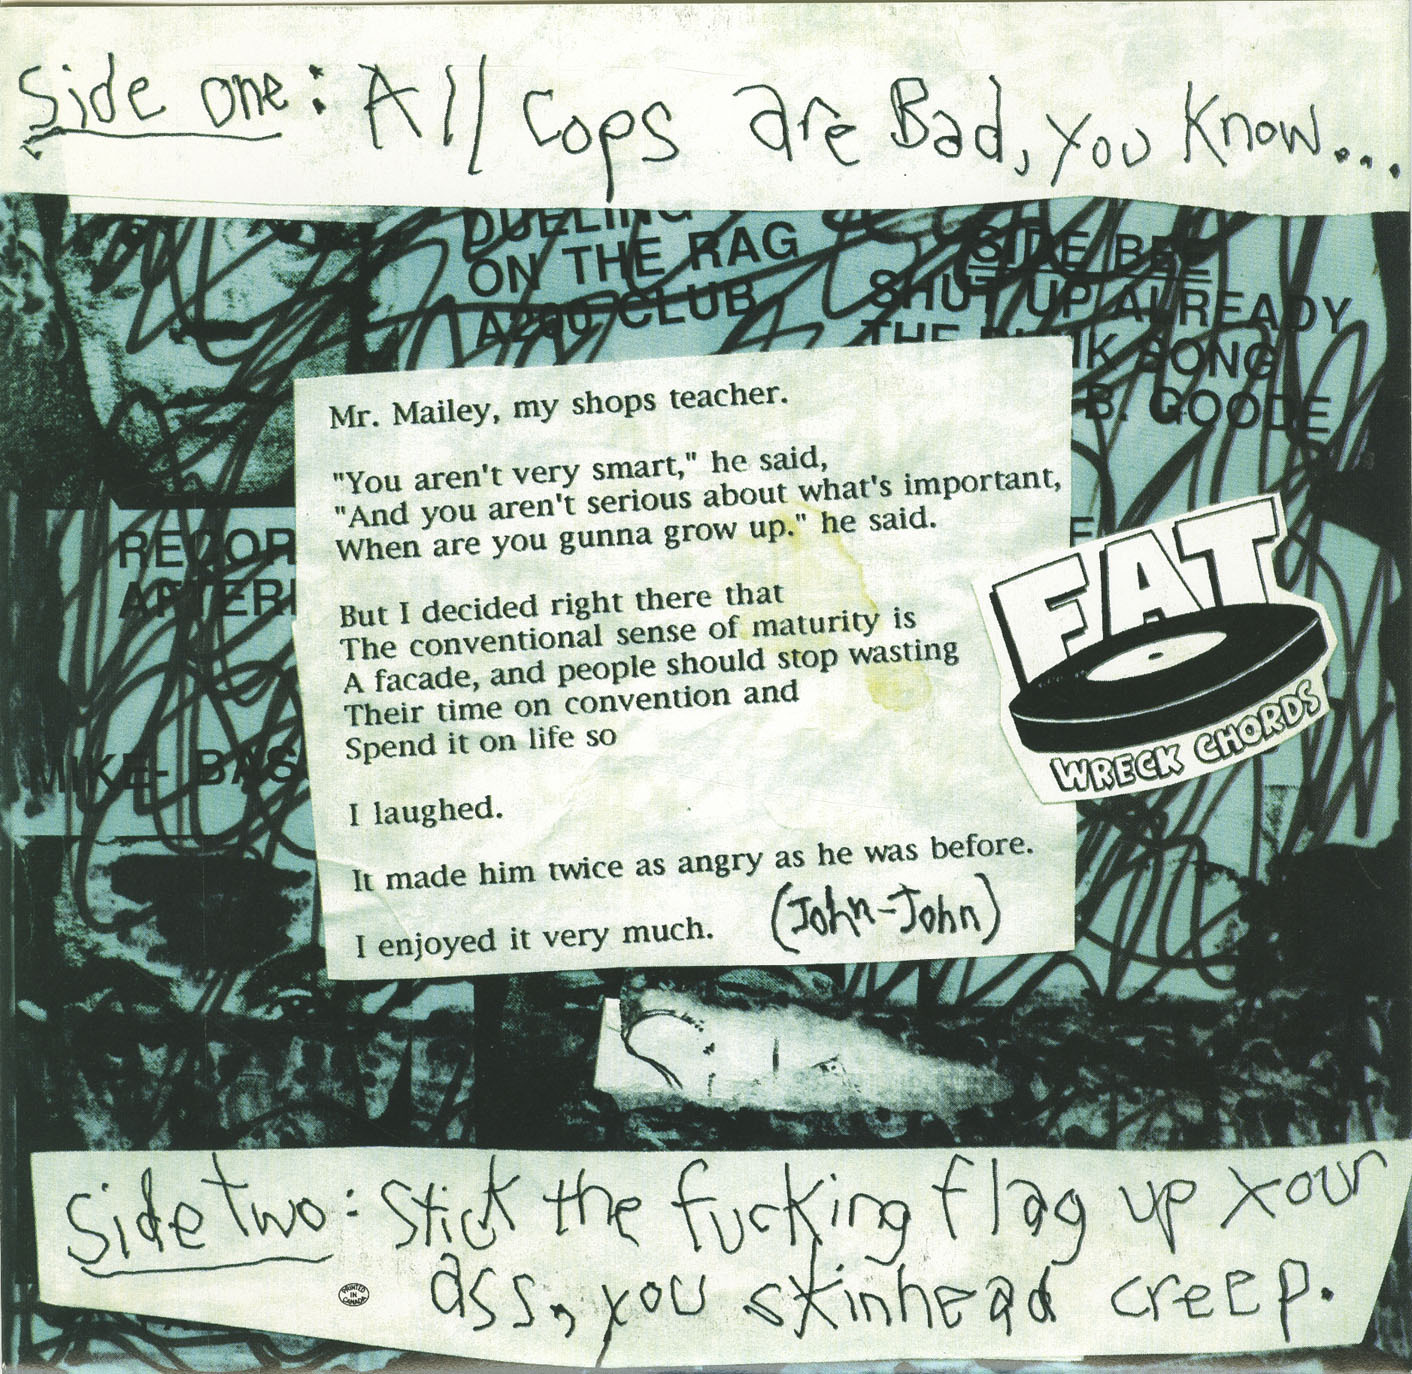 Side one: All Cops are Bad, you Know...
DUELING
ON THE RAG
A200 CLUB
SIDE BEE
SHUT UP ALREADY
SONG
B. GOODE
Mr. Mailey, my shops teacher.
"You aren't very smart," he said,
"And you aren't serious about what's important,
When are you gunna grow up." he said.
But I decided right there that
The conventional sense of maturity is
A facade, and people should stop wasting
Their time on convention and
Spend it on life so
I laughed.
It made him twice as angry as he was before.
I enjoyed it very much.
(John-John)
RECOR
AFTER
MIKE- BAS
FAT
WRECK CHORDS
Side two: Stick the fucking flag up your
ass, you skinhead creep.
PRINTED
IN
CANADA